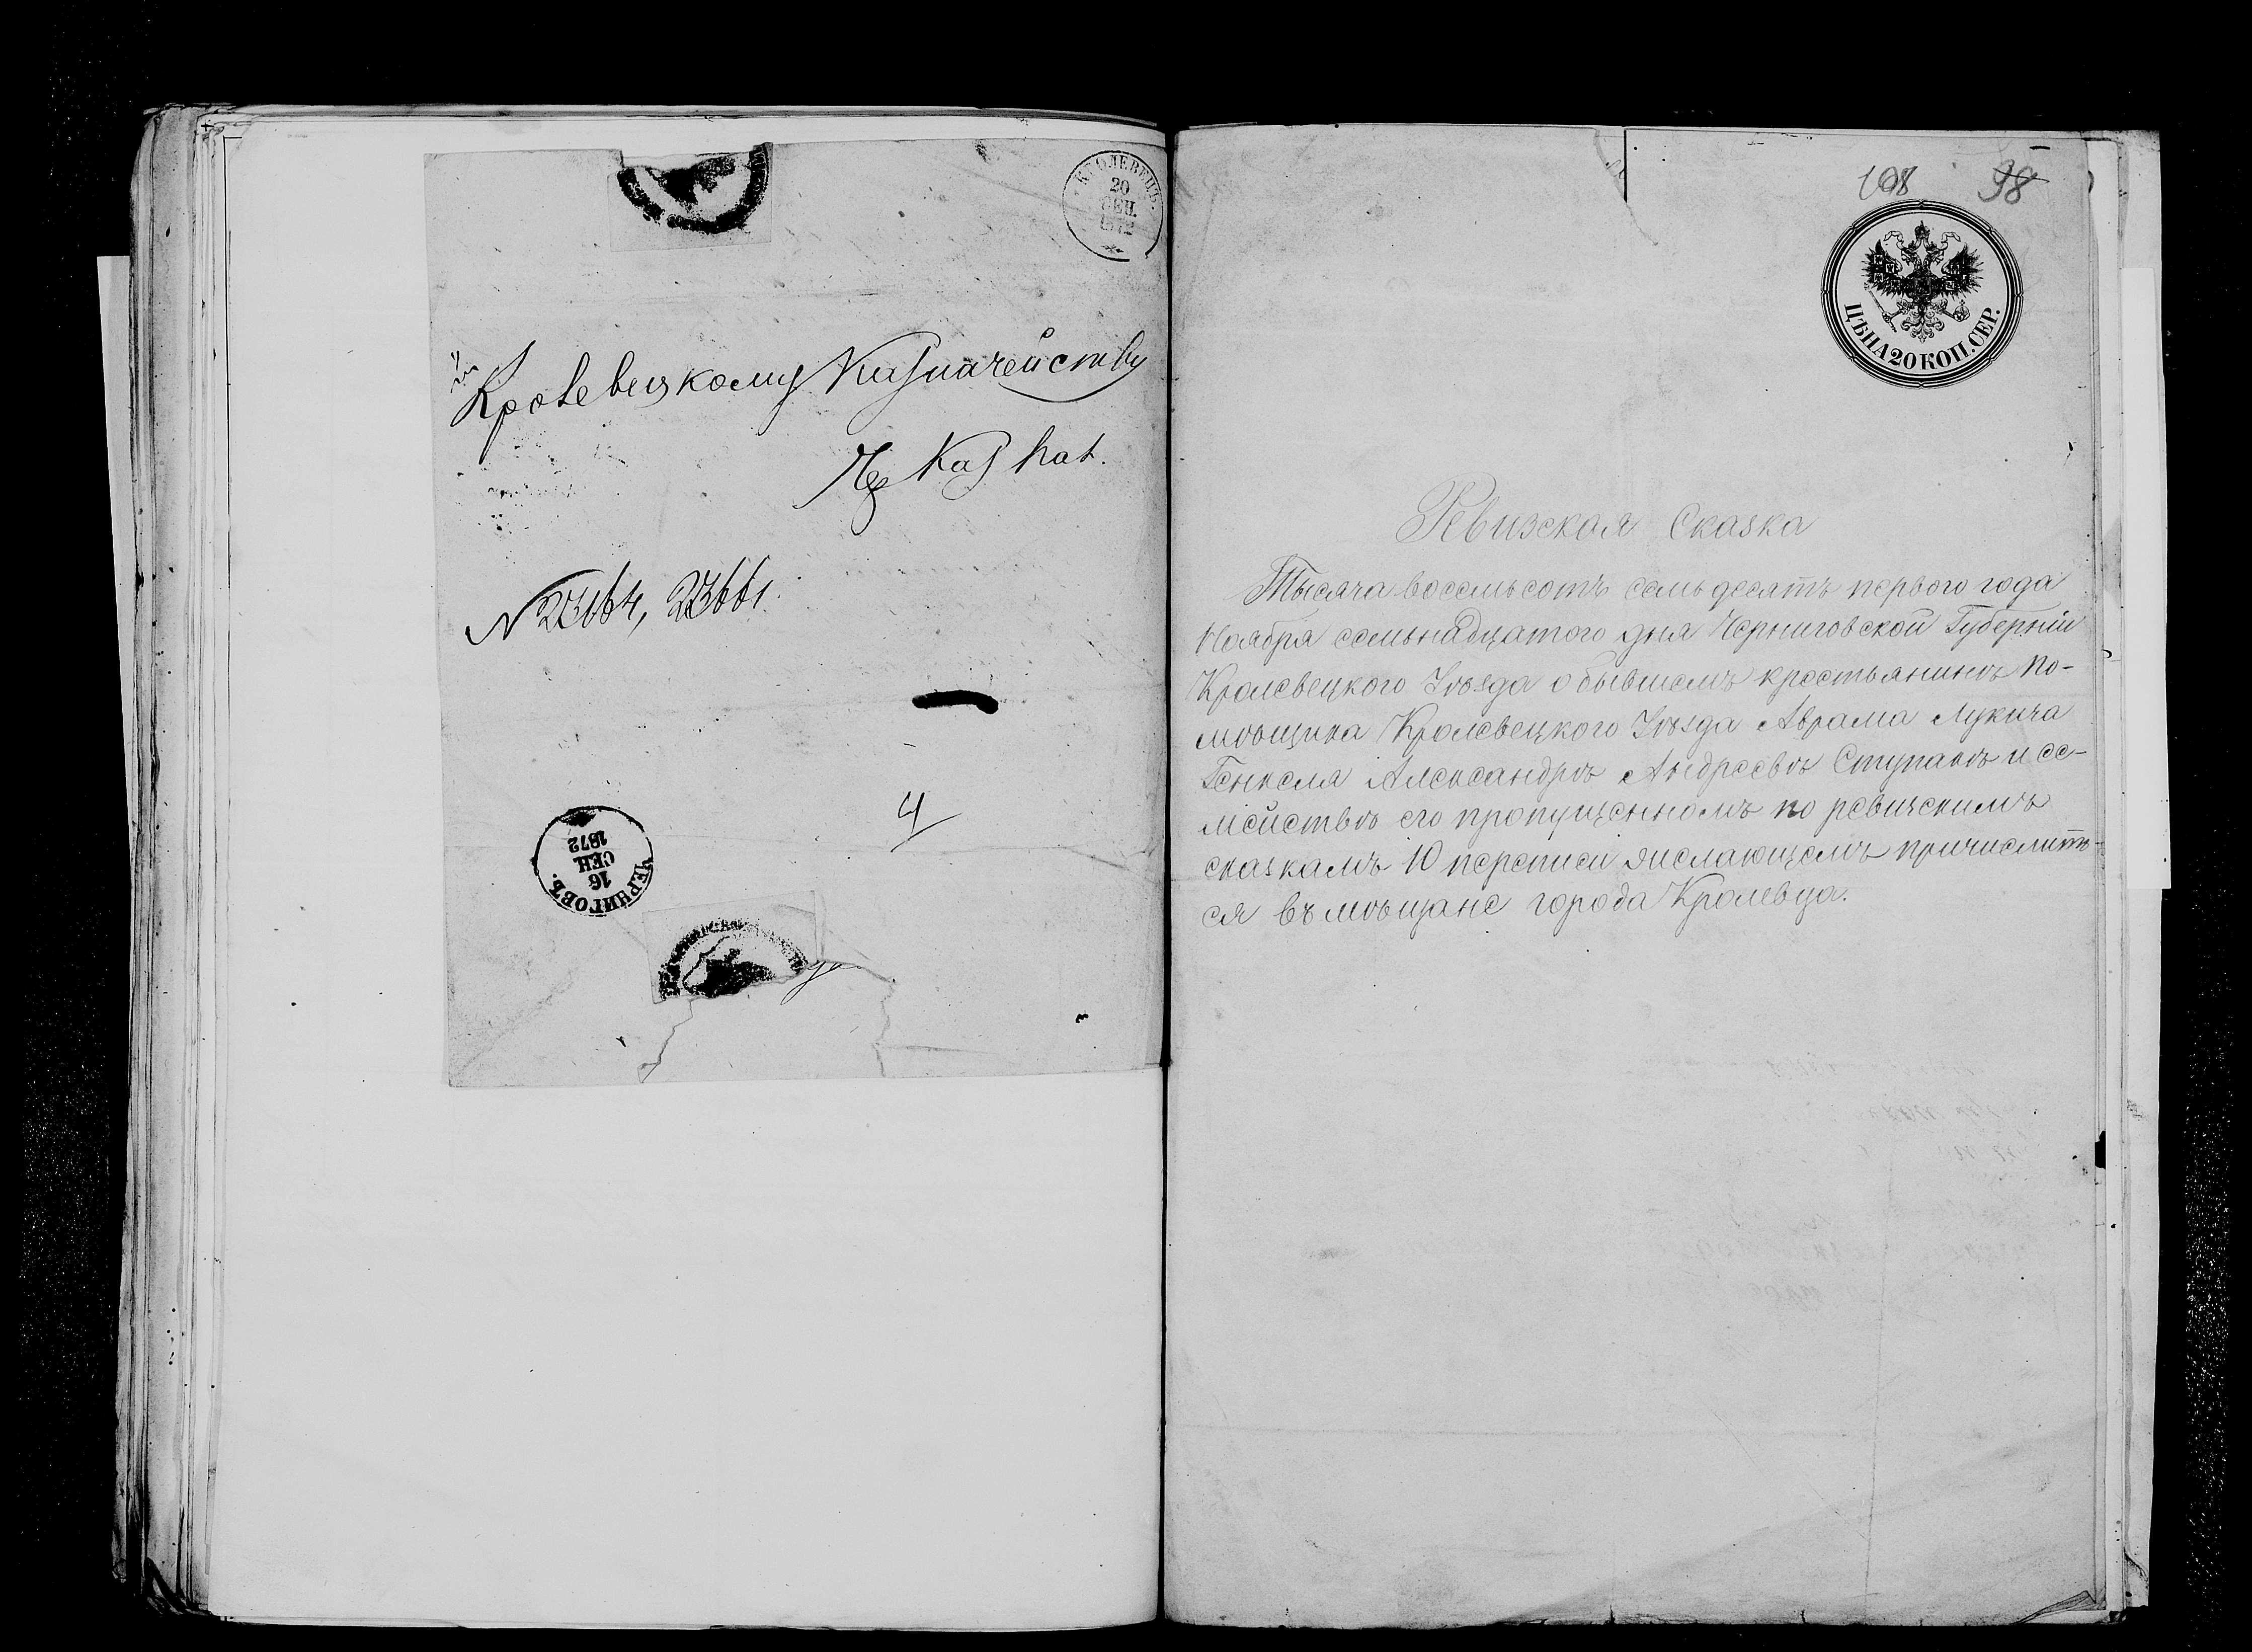 КРОЛЕВЕЦЪ.
20
СЕН.
1872
Кролевецкому Казначейству
Каз Пал.
№ 23164, 23661.
4
ЧЕРНИГОВЪ.
16
СЕН.
1872
108 98
ЦѢНА 20 КОП. СЕР.
Ревизская Сказка
Тысяча восемьсотъ семьдесятъ перваго года
Ноября семьнадцатого дня Черниговской Губерніи
Кролевецкого Уѣзда о бывшемъ крестьянинѣ по-
мѣщика Кролевецкого Уѣзда Аврама Лукича
Генкеля Александрѣ Андреевѣ Ступакѣ и се-
мействѣ его пропущенномъ по ревизскимъ
сказкамъ 10 переписи причислить-
ся въ мѣщане города Кролевца.